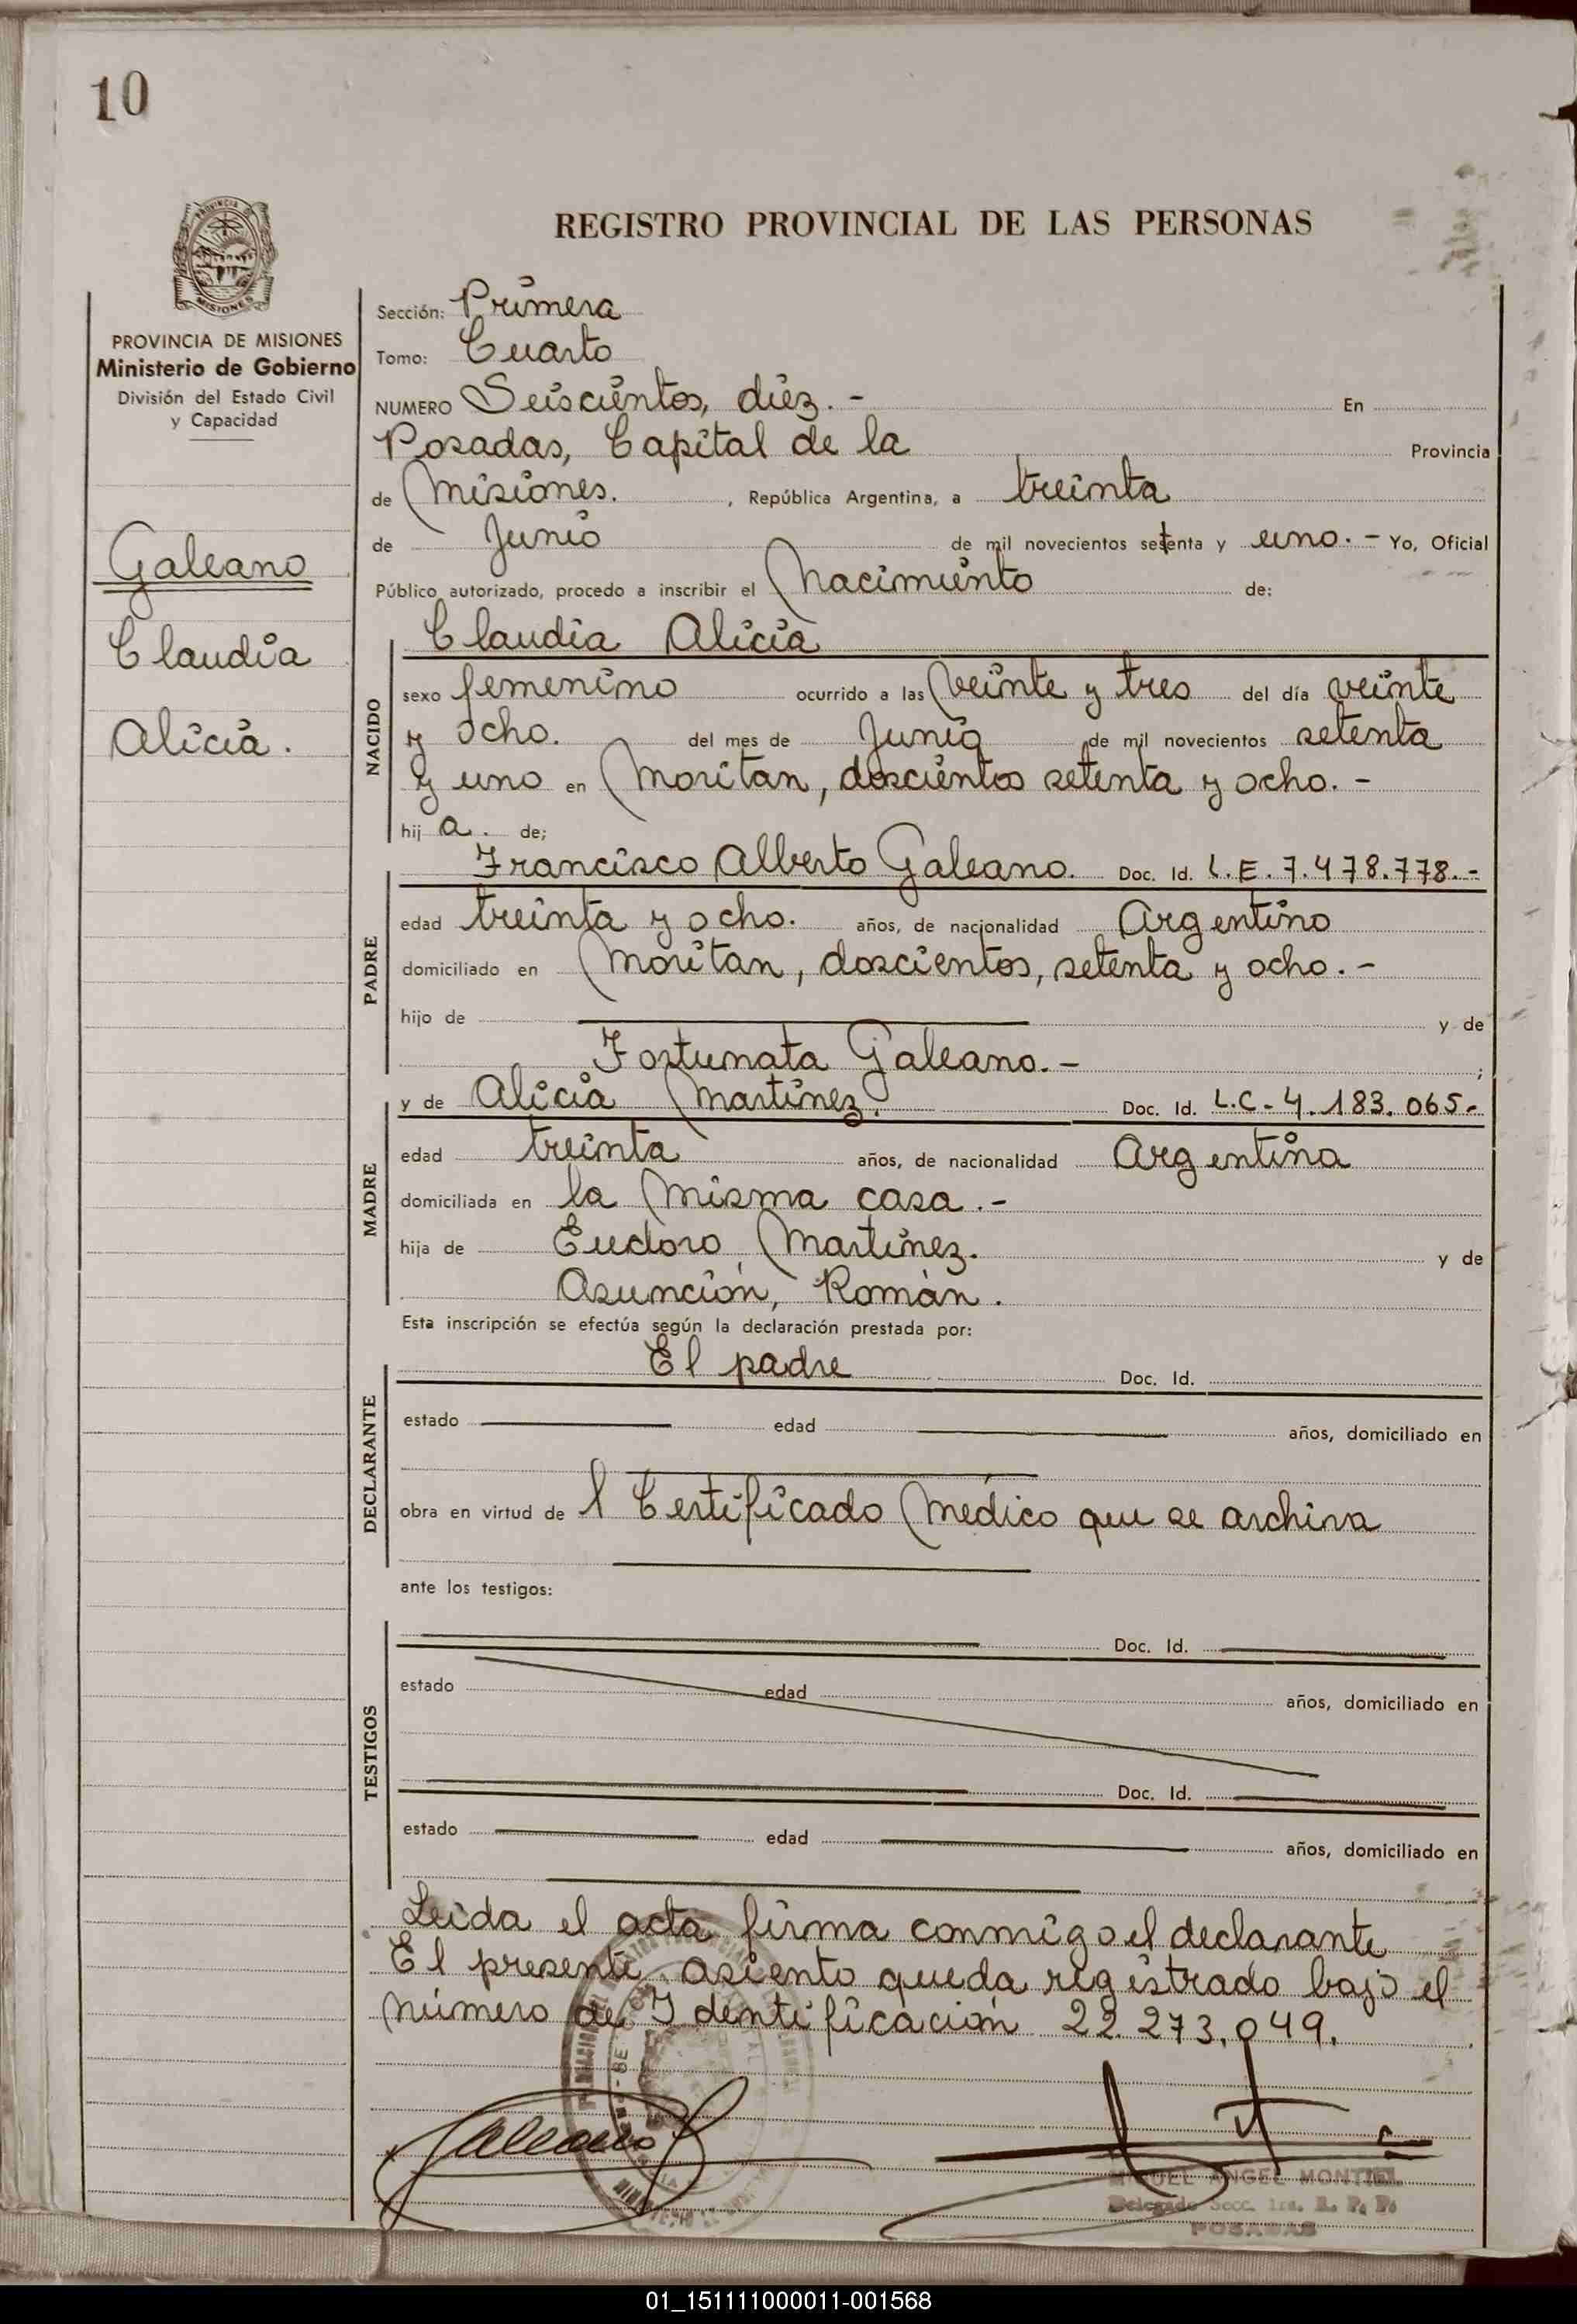 10
PROVINCIA DE
MISIONES
REGISTRO PROVINCIAL DE LAS PERSONAS
PROVINCIA DE MISIONES
Ministerio de Gobierno
División del Estado Civil
y Capacidad
Galeano
Claudia
Alicia.
Sección: Primera
Tomo: Cuarto
NUMERO Seiscientos, diez. - En
Posadas, Capital de la Provincia
de Misiones. , República Argentina, a treinta
de Junio de mil novecientos setenta y uno. - Yo, Oficial
Público autorizado, procedo a inscribir el Nacimiento de:
NACIDO
Claudia Alicia
sexo femenino ocurrido a las veinte y tres del día veinte
y ocho. del mes de Junio de mil novecientos setenta
y uno en Moritan, doscientos setenta y ocho. -
hij a. de;
PADRE
Francisco Alberto Galeano. Doc. Id. L.E. 7.478.778.-
edad treinta y ocho. años, de nacionalidad Argentino
domiciliado en Moritan, doscientos, setenta y ocho. -
hijo de y de
Fortunata Galeano. - ;
MADRE
y de Alicia Martinez. Doc. Id. L.C- 4.183.065-
edad treinta años, de nacionalidad Argentina
domiciliada en la misma casa. -
hija de Eudoro Martinez. y de
Asunción, Román.
Esta inscripción se efectúa según la declaración prestada por:
DECLARANTE
El padre Doc. Id.
estado edad años, domiciliado en
obra en virtud de l Certificado Médico que se archiva
ante los testigos:
TESTIGOS
Doc. Id.
estado edad años, domiciliado en
Doc. Id.
estado edad años, domiciliado en
Leida el acta firma conmigo el declarante
El presente asiento queda registrado bajo el
número de Identificación 22.273.049.
Galeano
MIGUEL ANGEL MONTIEL
Delegado Secc. 1ra. R. P. P.
POSADAS
01_151111000011-001568